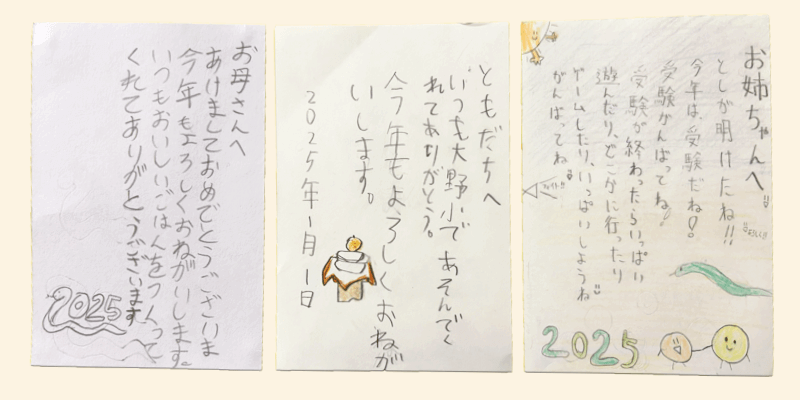 お母さんへ
あけましておめでとうございま
今年もよろしくおねがいします。
いつもおいしいごはんをつくって
くれてありがとうございます
2025
ともだちへ
いつも大野小であそんでく
れてありがとう。
今年もよろしくおねが
いします。
2025年1月1日
お姉ちゃんへ
としが明けたね!!
今年は、受験だね!
受験がんばってね!
受験が終わったらいっぱい
遊んだり、どこかに行ったり
ゲームしたり、いっぱいしようね
がんばってね
2025